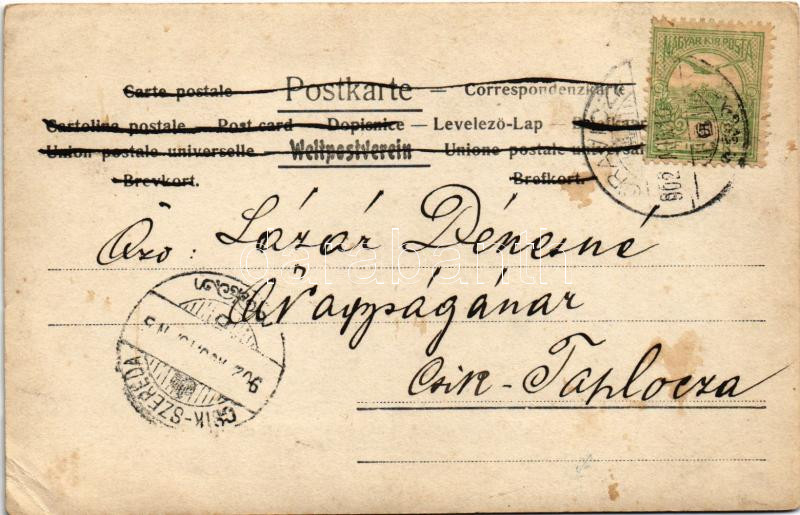 Carte postale — Postkarte — Correspondenzkarte
Cartolina postale — Post card — Dopisnice — Levelezö-Lap
Union postale universelle Weltpostverein Unione postale
Brevkort. Brefkort.
MAGYAR KIR. POSTA
902
Lázár Dénesné
Őnagyságának
Csik-Taplocza
CSIK-SZEREDA
902
darabanth